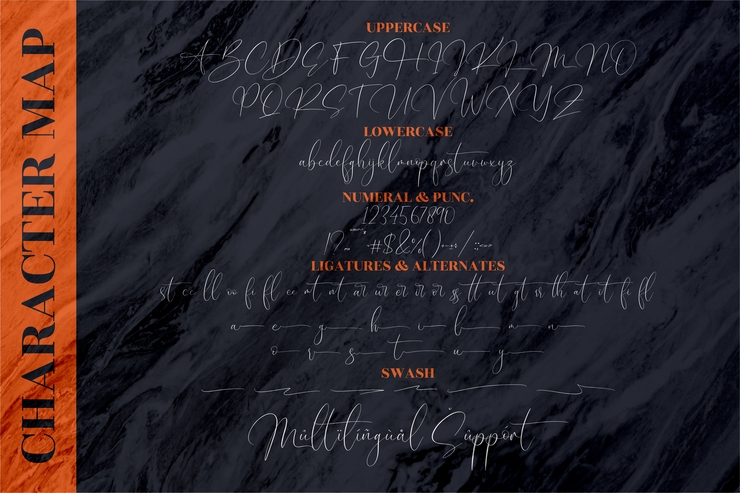 CHARACTER MAP
UPPERCASE
ABCDEFGHIJKLMNO
PQRSTUVWXYZ
LOWERCASE
abcdefghijklmnopqrstuvwxyz
NUMERAL & PUNC.
1234567890
!? #$&%()
LIGATURES & ALTERNATES
st cc ll oo fi fl ee rt mt ar ur er ir or ss tt ut gt sr th at it fi fl
a e g h i l m n
o r s t u y
SWASH
Mültilíngùâl Süppórt